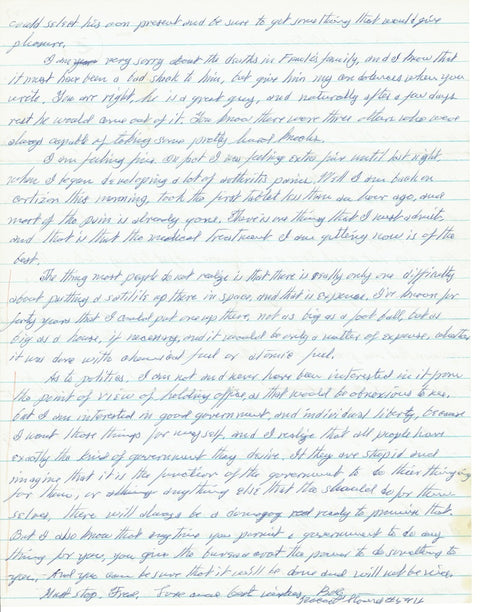 could select his own present and be sure to get something that would give
pleasure.
I am very sorry about the deaths in Frank's family, and I know that
it must have been a bad shock to him, but give him my condolences when you
write. You are right, he is a great guy, and naturally after a few days
rest he would come out of it. You know there were three others who were
always capable of taking some pretty hard knocks.
I am feeling fine. In fact I was feeling extra fine until last night,
when I began developing a lot of arthritis pains. Well I am back on
cortizon this morning, took the first tablet less than an hour ago, and
most of the pain is already gone. There is one thing that I must admit,
and that is that the medical treatment I am getting now is of the
best.
The thing most people do not realize is that there is really only one difficulty
about putting a satelite up there in space, and that is expense. I've known for
forty years that I could put one up there, not as big as a foot ball, but as
big as a house, if necessary, and it would be only a matter of expense, whether
it was done with chemical fuel or atomic fuel.
As to politics, I am not and never have been interested in it from
the point of view of holding office, as that would be obnoxious to me.
But I am interested in good government, and individual liberty, because
I want those things for myself, and I realize that all people have
exactly the kind of government they desire. If they are stupid and
imagine that it is the function of the government to do their thinking
for them, or anything else that they should do for them-
selves, there will always be a ready to promise that.
But I also know that any time you permit a government to do any
thing for you, you give the bureaucrat the power to do something to
you. And you can be sure that it will be done and will not be nice.
Must stop, Fred. Love and best wishes, Bob